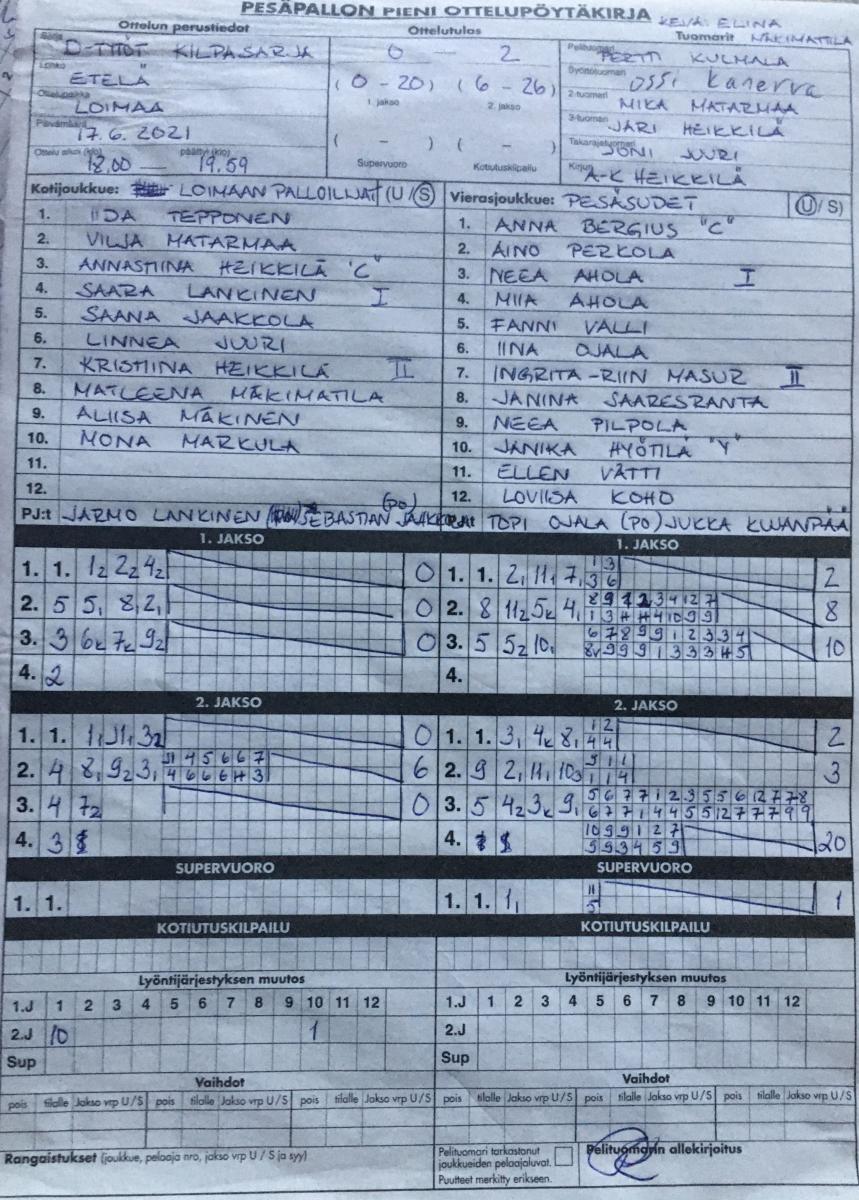 PESÄPALLON PIENI OTTELUPÖYTÄKIRJA
Ottelun perustiedot Ottelutulos Tuomarit ELINA MÄKIMATTILA
D-TYTÖT KILPASARJA 0 - 2 Pelituomari PERTTI KULMALA
Lohko ETELÄ (0-20) (6-26) Syöttötuomari OSSI Kanerva
1. jakso 2. jakso
Ottelupaikka LOIMAA 2-tuomari MIKA MATARMAA
Päivämäärä 17.6.2021 3-tuomari JARI HEIKKILÄ
( - ) ( - ) Takarajatuomari JONI JUURI
Ottelu alkoi (klo) 18.00 päättyi (klo) 19.59 Supervuoro Kotiutuskilpailu Kirjuri A-K HEIKKILÄ
Kotijoukkue: LOIMAAN PALLOILIJAT (U/S) Vierasjoukkue: PESÄSUDET (U/S)
1. IIDA TEPPONEN 1. ANNA BERGIUS "C"
2. VILJA MATARMAA 2. AINO PERKOLA
3. ANNASTIINA HEIKKILÄ "C" 3. NEEA AHOLA I
4. SAARA LANKINEN I 4. MIIA AHOLA
5. SAANA JAAKKOLA 5. FANNI VALLI
6. LINNEA JUURI 6. IINA OJALA
7. KRISTIINA HEIKKILÄ II 7. INGRITA-RIIN MASUR II
8. MATLEENA MÄKIMATILA 8. JANINA SAARESRANTA
9. ALIISA MÄKINEN 9. NEEA PILPOLA
10. MONA MARKULA 10. JANIKA HYÖTILÄ "Y"
11. 11. ELLEN VÄTTI
12. 12. LOVIISA KOHO
PJ:t JARMO LANKINEN (PO) SEBASTIAN TOPI OJALA (PO) JUKKA
1. JAKSO 1. JAKSO
1. 1. 1₂ 2₂ 4₂ 0 1. 1. 2₁ 11₁ 7₁ 1 3 2
3 6
2. 5 5₁ 8₁ 2₁ 0 2. 8 11₂ 5ₖ 4₁ 8
3. 3 6ₖ 7ₖ 9₂ 0 3. 5 5₂ 10₁ 6 7 8 9 9 1 2 3 3 4 10
4. 2 4.
2. JAKSO 2. JAKSO
1. 1. 3₂ 0 1. 1. 3₁ 4ₖ 8₁ 1 2 2
4 4
2. 4 8₁ 9₂ 3₁ 4 5 6 6 7 6 2. 9 2₁ 11₁ 10₃ 3
4 6 6 6 H 3 1 1 4
3. 4 7₂ 0 3. 5 4₂ 3ₖ 9₁ 5 6 7 7 1 2 3 5 5 6 12 7 7 8
6 7 7 1 4 4 5 5 12 7 7 7 9 9
4. 3 4. 10 9 9 1 2 7 20
9 9 3 4 5 9
SUPERVUORO SUPERVUORO
1. 1. 1. 1. 1₁ 11 1
5
KOTIUTUSKILPAILU KOTIUTUSKILPAILU
Lyöntijärjestyksen muutos Lyöntijärjestyksen muutos
1.J 1 2 3 4 5 6 7 8 9 10 11 12 1.J 1 2 3 4 5 6 7 8 9 10 11 12
2.J 10 1 2.J
Sup Sup
Vaihdot Vaihdot
pois tilalle Jakso vrp U/S pois tilalle Jakso vrp U/S pois tilalle Jakso vrp U/S pois tilalle Jakso vrp U/S pois tilalle Jakso vrp U/S pois tilalle Jakso vrp U/S
Rangaistukset (joukkue, pelaaja nro, jakso vrp U / S ja syy) Pelituomari tarkastanut joukkueiden pelaajaluvat. Pelituomarin allekirjoitus
Puutteet merkitty erikseen.